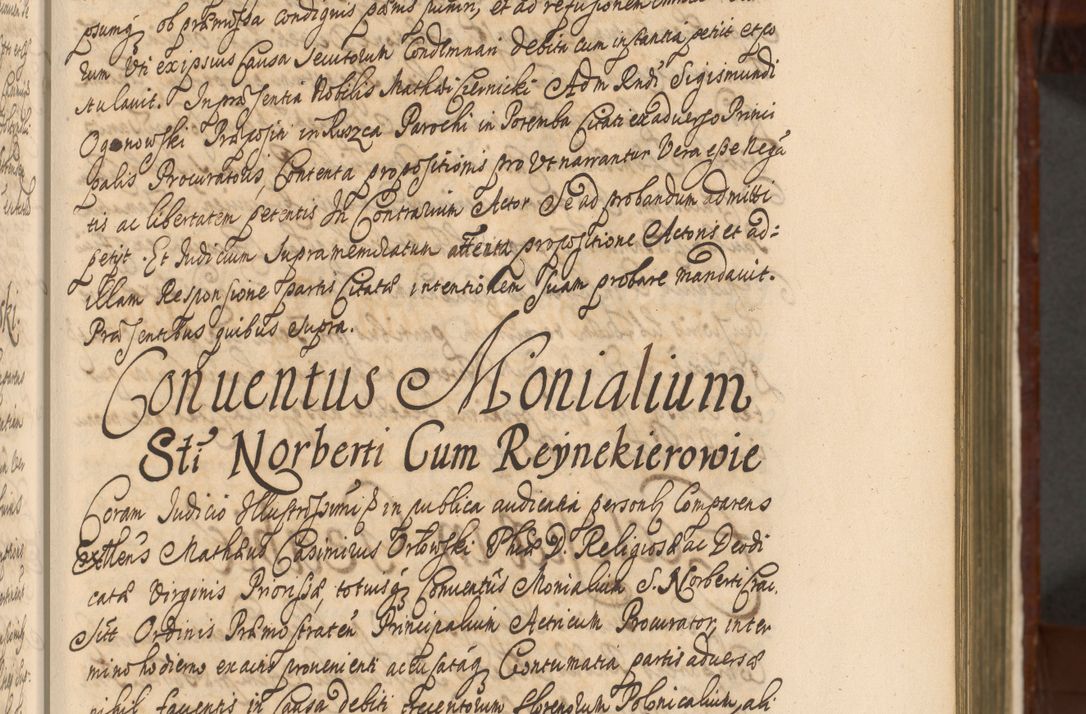 psumq ob præmissa condignis pænis puniri, et ad refusionem
rum Vti ex ipsius Causa secutorum Condemnari debita cum instantia petit et po
stulauit. In præsentia Nobilis Mathæi Ciernicki Adm Rndi Sigismundi
Ogonowski Præpositi in Ruszca Parochi in Poremba Citati ex aduerso Princi
palis Procuratoris, Contenta propositionis pro Vt narrantur Vera esse Negã
tis ac libertatem petentis In Contrarium Actor Se ad probandum admitti
petijt. Et Iudicium supramemoratum attenta propositione Actoris et ad=
illam Responsione partis Citatæ intentionem suam probare mandauit.
Præsentibus quibus supra.
Conuentus Monialium
Sti Norberti Cum Reynekierowie
Coram Iudicio Illustrissimi p in publica audientia personlr Comparens
Exllens Mathæus Casimirus Orłowski Phiæ D. Religiosæ ac Deodi
catæ Virginis Priorissæ totiusq Conuentus Monialium S. Norberti Crac.
Sitt Ordinis Præmostraten Principalium Actricum Procurator, in ter
mino hodierno ex actis prouenienti accusataq Contumatia partis aduersæ
nihil fauentis in Causa debiti trecentorum florenorum Polonicalium, ali